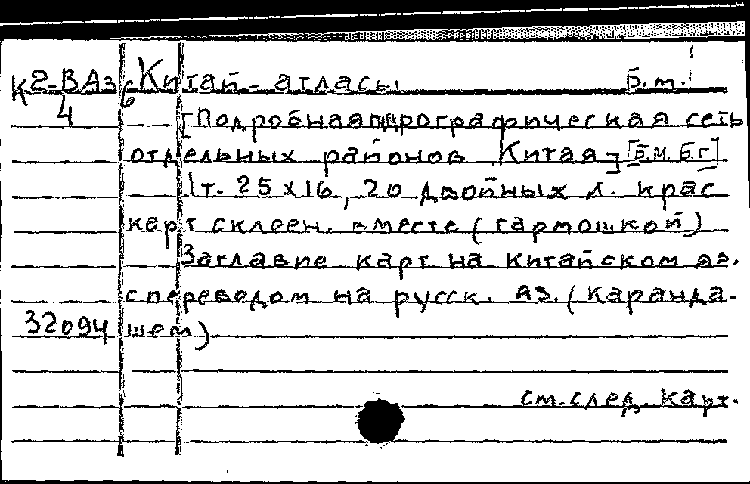 К2-ВАз6 Китай - атласы б.м.
4 [Подробная гидрографическая сеть
отдельных районов Китая] [Б.м. б.г]
1т. 25х16, 20 двойных л. крас
карт склеен. вместе (гармошкой)
Заглавие карт на китайском яз.
с переводом на русск. яз. (каранда-
32094 шом)
см. след. карт.